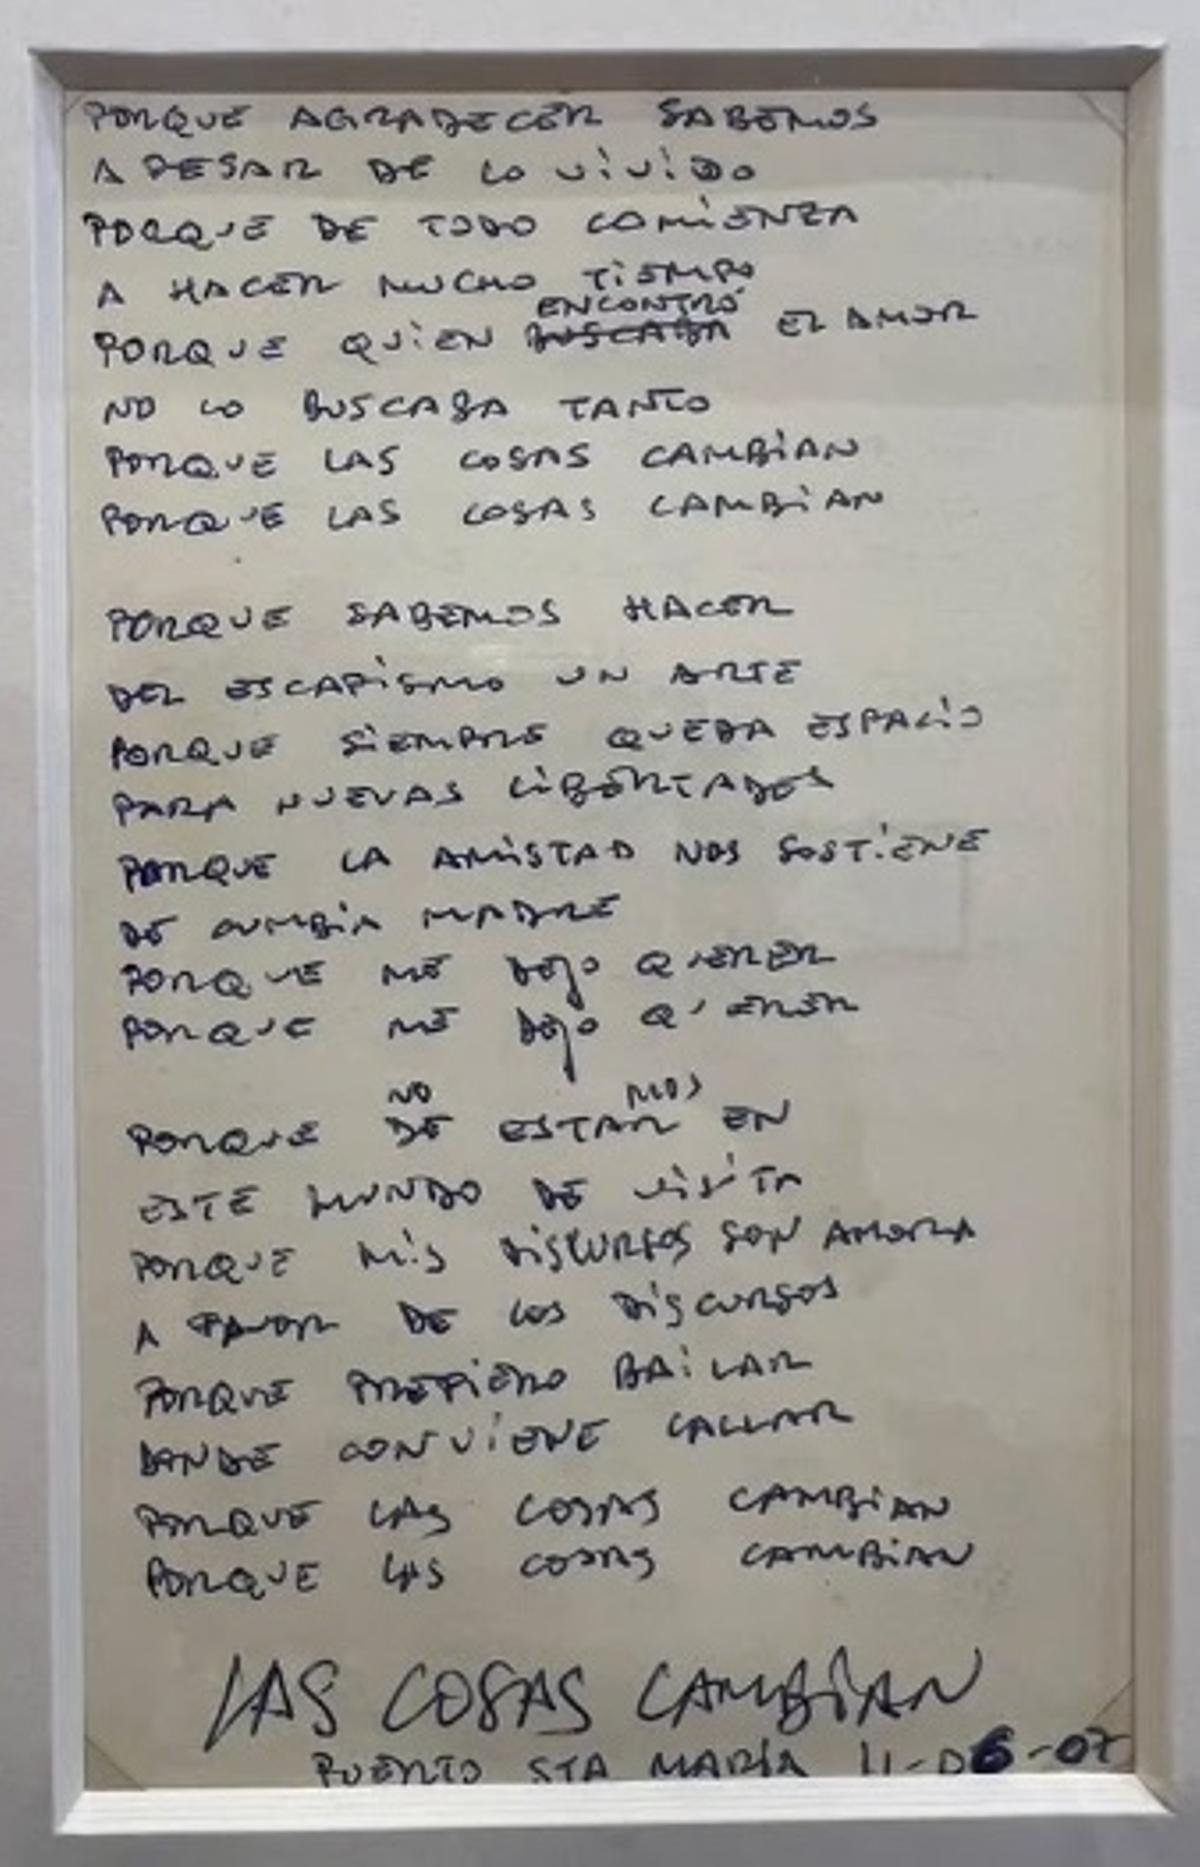 PORQUE AGRADECER SABEMOS
A PESAR DE LO VIVIDO
PORQUE DE TODO COMIENZA
A HACER MUCHO TIEMPO
ENCONTRÓ
PORQUE QUIEN BUSCABA EL AMOR
NO LO BUSCABA TANTO
PORQUE LAS COSAS CAMBIAN
PORQUE LAS COSAS CAMBIAN
PORQUE SABEMOS HACER
DEL ESCAPISMO UN ARTE
PORQUE SIEMPRE QUEDA ESPACIO
PARA NUEVAS LIBERTADES
PORQUE LA AMISTAD NOS SOSTIENE
DE CUMBIA MADRE
PORQUE ME DEJO QUERER
PORQUE ME DEJO QUERER
NO MOS
PORQUE DE ESTAR EN
ESTE MUNDO DE VISITA
PORQUE MIS DISCURSOS SON AHORA
A FAVOR DE LOS DISCURSOS
PORQUE PREFIERO BAILAR
DONDE CONVIENE CALLAR
PORQUE LAS COSAS CAMBIAN
PORQUE LAS COSAS CAMBIAN
LAS COSAS CAMBIAN
PUERTO STA MARÍA 11-06-07